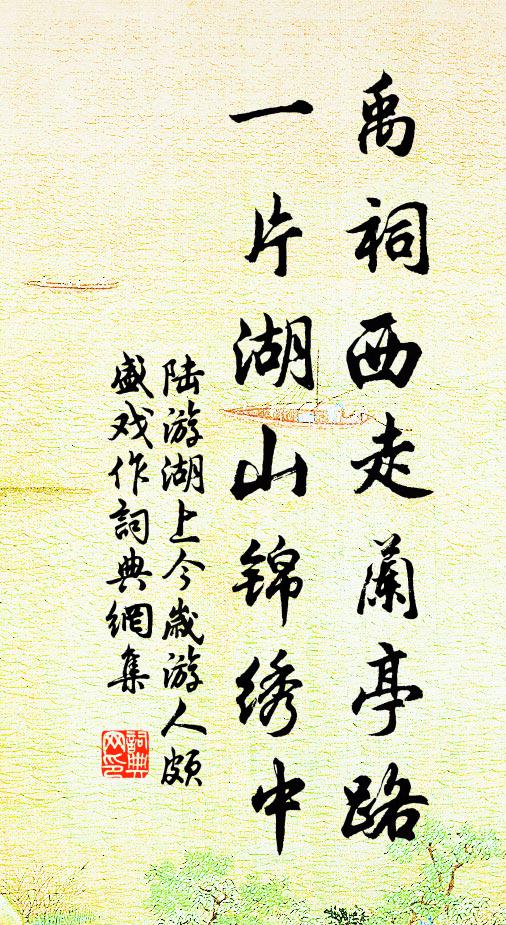 禹祠西走蘭亭路
一片湖山锦绣中
陆游湖上今歲游人頗
盛戏作詞典網集
詞典
网印